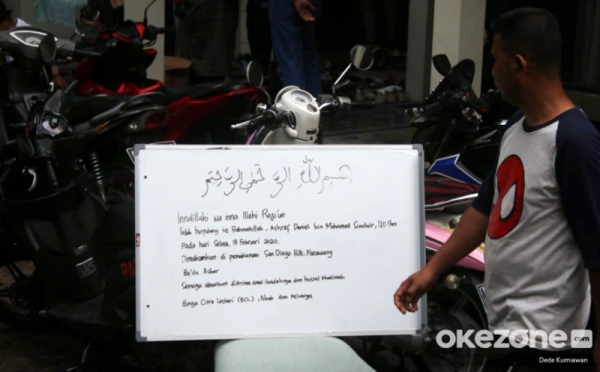 بسم الله الرحمن الرحيم
Innalillahi wa inna illahi Roji'un
Telah berpulang ke Rahmatullah, Ashraf Daniel bin Mohammed Sinclair,
Pada hari Selasa, 18 Februari 2020.
Dimakamkan di pemakaman San Diego Hills Karawang
Ba'da Ashar
Semoga almarhum diterima amal ibadahnya dan husnul khotimah
Bunga Citra Lestari (BCL), Noah dan keluarga
okezone.com
Dede Kurniawan